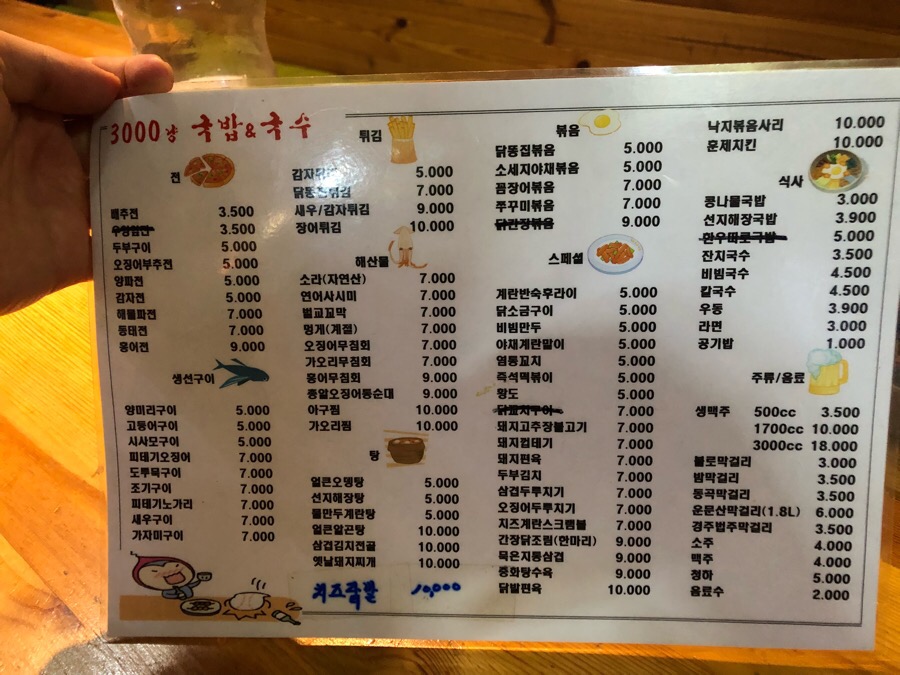 3000냥 국밥&국수
전
배추전 3.500
우엉잎전 3.500
두부구이 5.000
오징어부추전 5.000
양파전 5.000
감자전 5.000
해물파전 7.000
동태전 7.000
홍어전 9.000
생선구이
양미리구이 5.000
고등어구이 5.000
시사모구이 5.000
피데기오징어 7.000
도루묵구이 7.000
조기구이 7.000
피데기노가리 7.000
새우구이 7.000
가자미구이 7.000
튀김
감자튀김 5.000
닭똥집튀김 7.000
새우/감자튀김 9.000
장어튀김 10.000
해산물
소라(자연산) 7.000
연어사시미 7.000
벌교꼬막 7.000
멍게(계절) 7.000
오징어무침회 7.000
가오리무침회 7.000
홍어무침회 9.000
통알오징어통순대 9.000
아구찜 10.000
가오리찜 10.000
탕
얼큰오뎅탕 5.000
선지해장탕 5.000
물만두계란탕 5.000
얼큰알곤탕 10.000
삼겹김치전골 10.000
옛날돼지찌개 10.000
치즈족발 10,000
볶음
닭똥집볶음 5.000
소세지야채볶음 5.000
꼼장어볶음 7.000
쭈꾸미볶음 7.000
닭간장볶음 9.000
스페셜
계란반숙후라이 5.000
닭소금구이 5.000
비빔만두 5.000
야채계란말이 5.000
염통꼬치 5.000
즉석떡볶이 5.000
황도 5.000
7.000
돼지고추장불고기 7.000
돼지껍데기 7.000
돼지편육 7.000
두부김치 7.000
삼겹두루치기 7.000
오징어두루치기 7.000
치즈계란스크램블 7.000
간장닭조림(한마리) 9.000
묵은지통삼겹 9.000
중화탕수육 9.000
닭발편육 10.000
낙지볶음사리 10.000
훈제치킨 10.000
식사
콩나물국밥 3.000
선지해장국밥 3.900
한우따로국밥 5.000
잔치국수 3.500
비빔국수 4.500
칼국수 4.500
우동 3.900
라면 3.000
공기밥 1.000
주류/음료
생맥주 500cc 3.500
1700cc 10.000
3000cc 18.000
불로막걸리 3.000
밤막걸리 3.500
동곡막걸리 3.500
운문산막걸리(1.8L) 6.000
경주법주막걸리 3.500
소주 4.000
맥주 4.000
청하 5.000
음료수 2.000